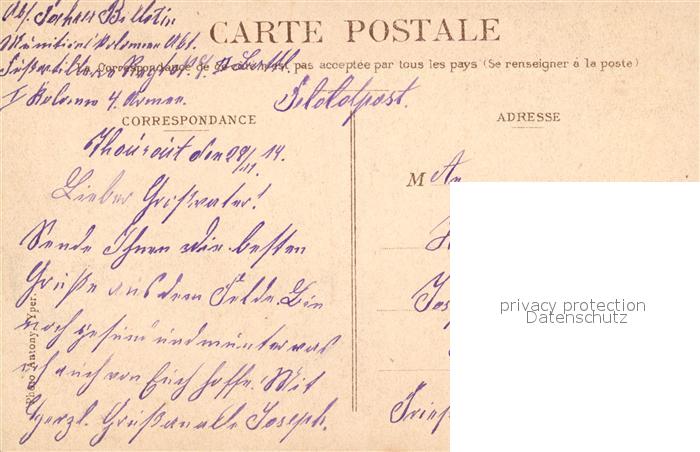 Abs. Fahrer
Munitions Kolonnen Abt.
I Kolonne 4. Armee.
CARTE POSTALE
La Correspondance de ce côté n'est pas acceptée par tous les pays (Se renseigner à la poste)
Feldpost.
CORRESPONDANCE
Thourout den 28/11. 14.
Lieber Großvater!
Sende Ihnen die besten
Grüße aus dem Felde. Bin
noch gesund und munter was
ich auch von Euch hoffe. Mit
herzl. Gruß an alle Joseph.
Photo Antony, Yper.
ADRESSE
M An
privacy protection
Datenschutz